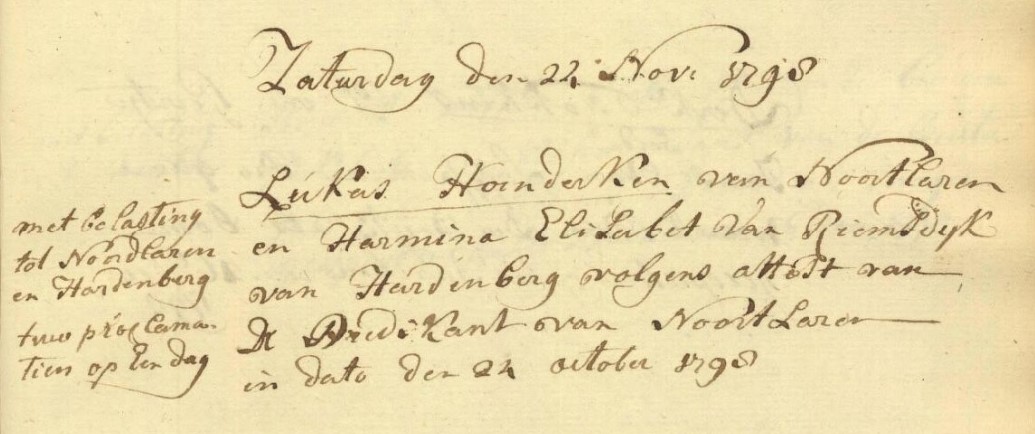 Zaturdag den 24 Nov: 1798
Lukas Hoenderken van Noortlaren
en Harmina Elisabet van Riemsdyk
van Hardenberg volgens attest van
de Predikant van Noortlaren
in dato den 24 october 1798
met belasting
tot Noordlaren
en Hardenberg
twe proclama-
tien op Een dag